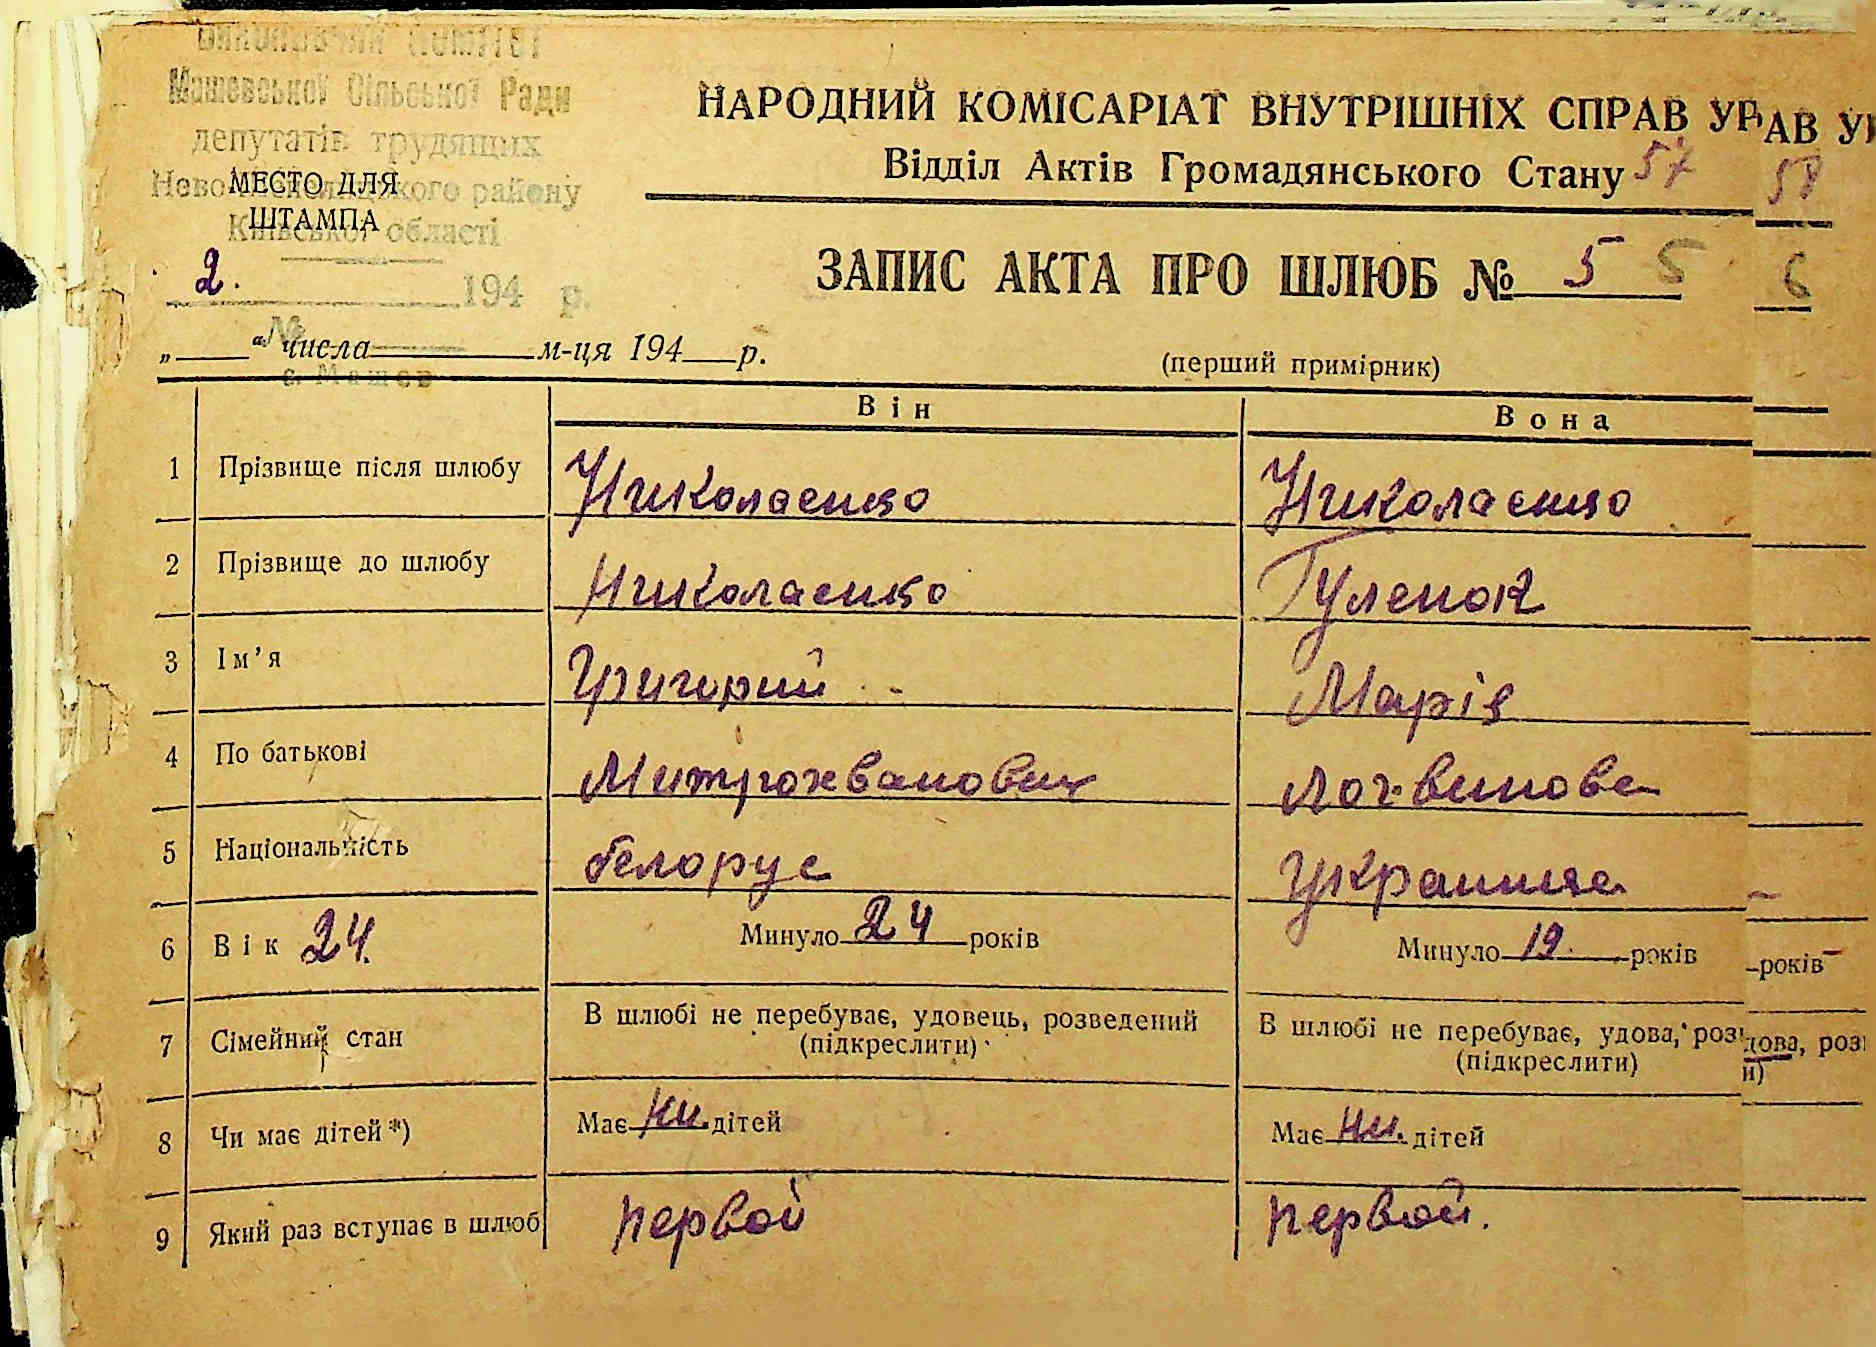 Виконавчий Комітет
Машевської Сільської Ради
депутатів трудящих
району
МЕСТО ДЛЯ
ШТАМПА
Київської області
2. 194 р.
№
„ “ числа м-ця 194 р.
с. Машев
НАРОДНИЙ КОМІСАРІАТ ВНУТРІШНІХ СПРАВ УР
Відділ Актів Громадянського Стану 57
ЗАПИС АКТА ПРО ШЛЮБ № 5 5
(перший примірник)
АВ УР
58
6
Він Вона
1 Прізвище після шлюбу Николаенко Николаенко
2 Прізвище до шлюбу Николаенко Гуленок
3 Ім’я Григорий Марія
4 По батькові Митрохванович Логвинова
5 Національність белорус Украинка
6 Вік 24. Минуло 24 років Минуло 19. років
-років
7 Сімейний стан В шлюбі не перебуває, удовець, розведений В шлюбі не перебуває, удова, роз
(підкреслити) (підкреслити)
дова, роз
и)
8 Чи має дітей *) Має ни. дітей Має ни. дітей
9 Який раз вступає в шлюб первой первой.